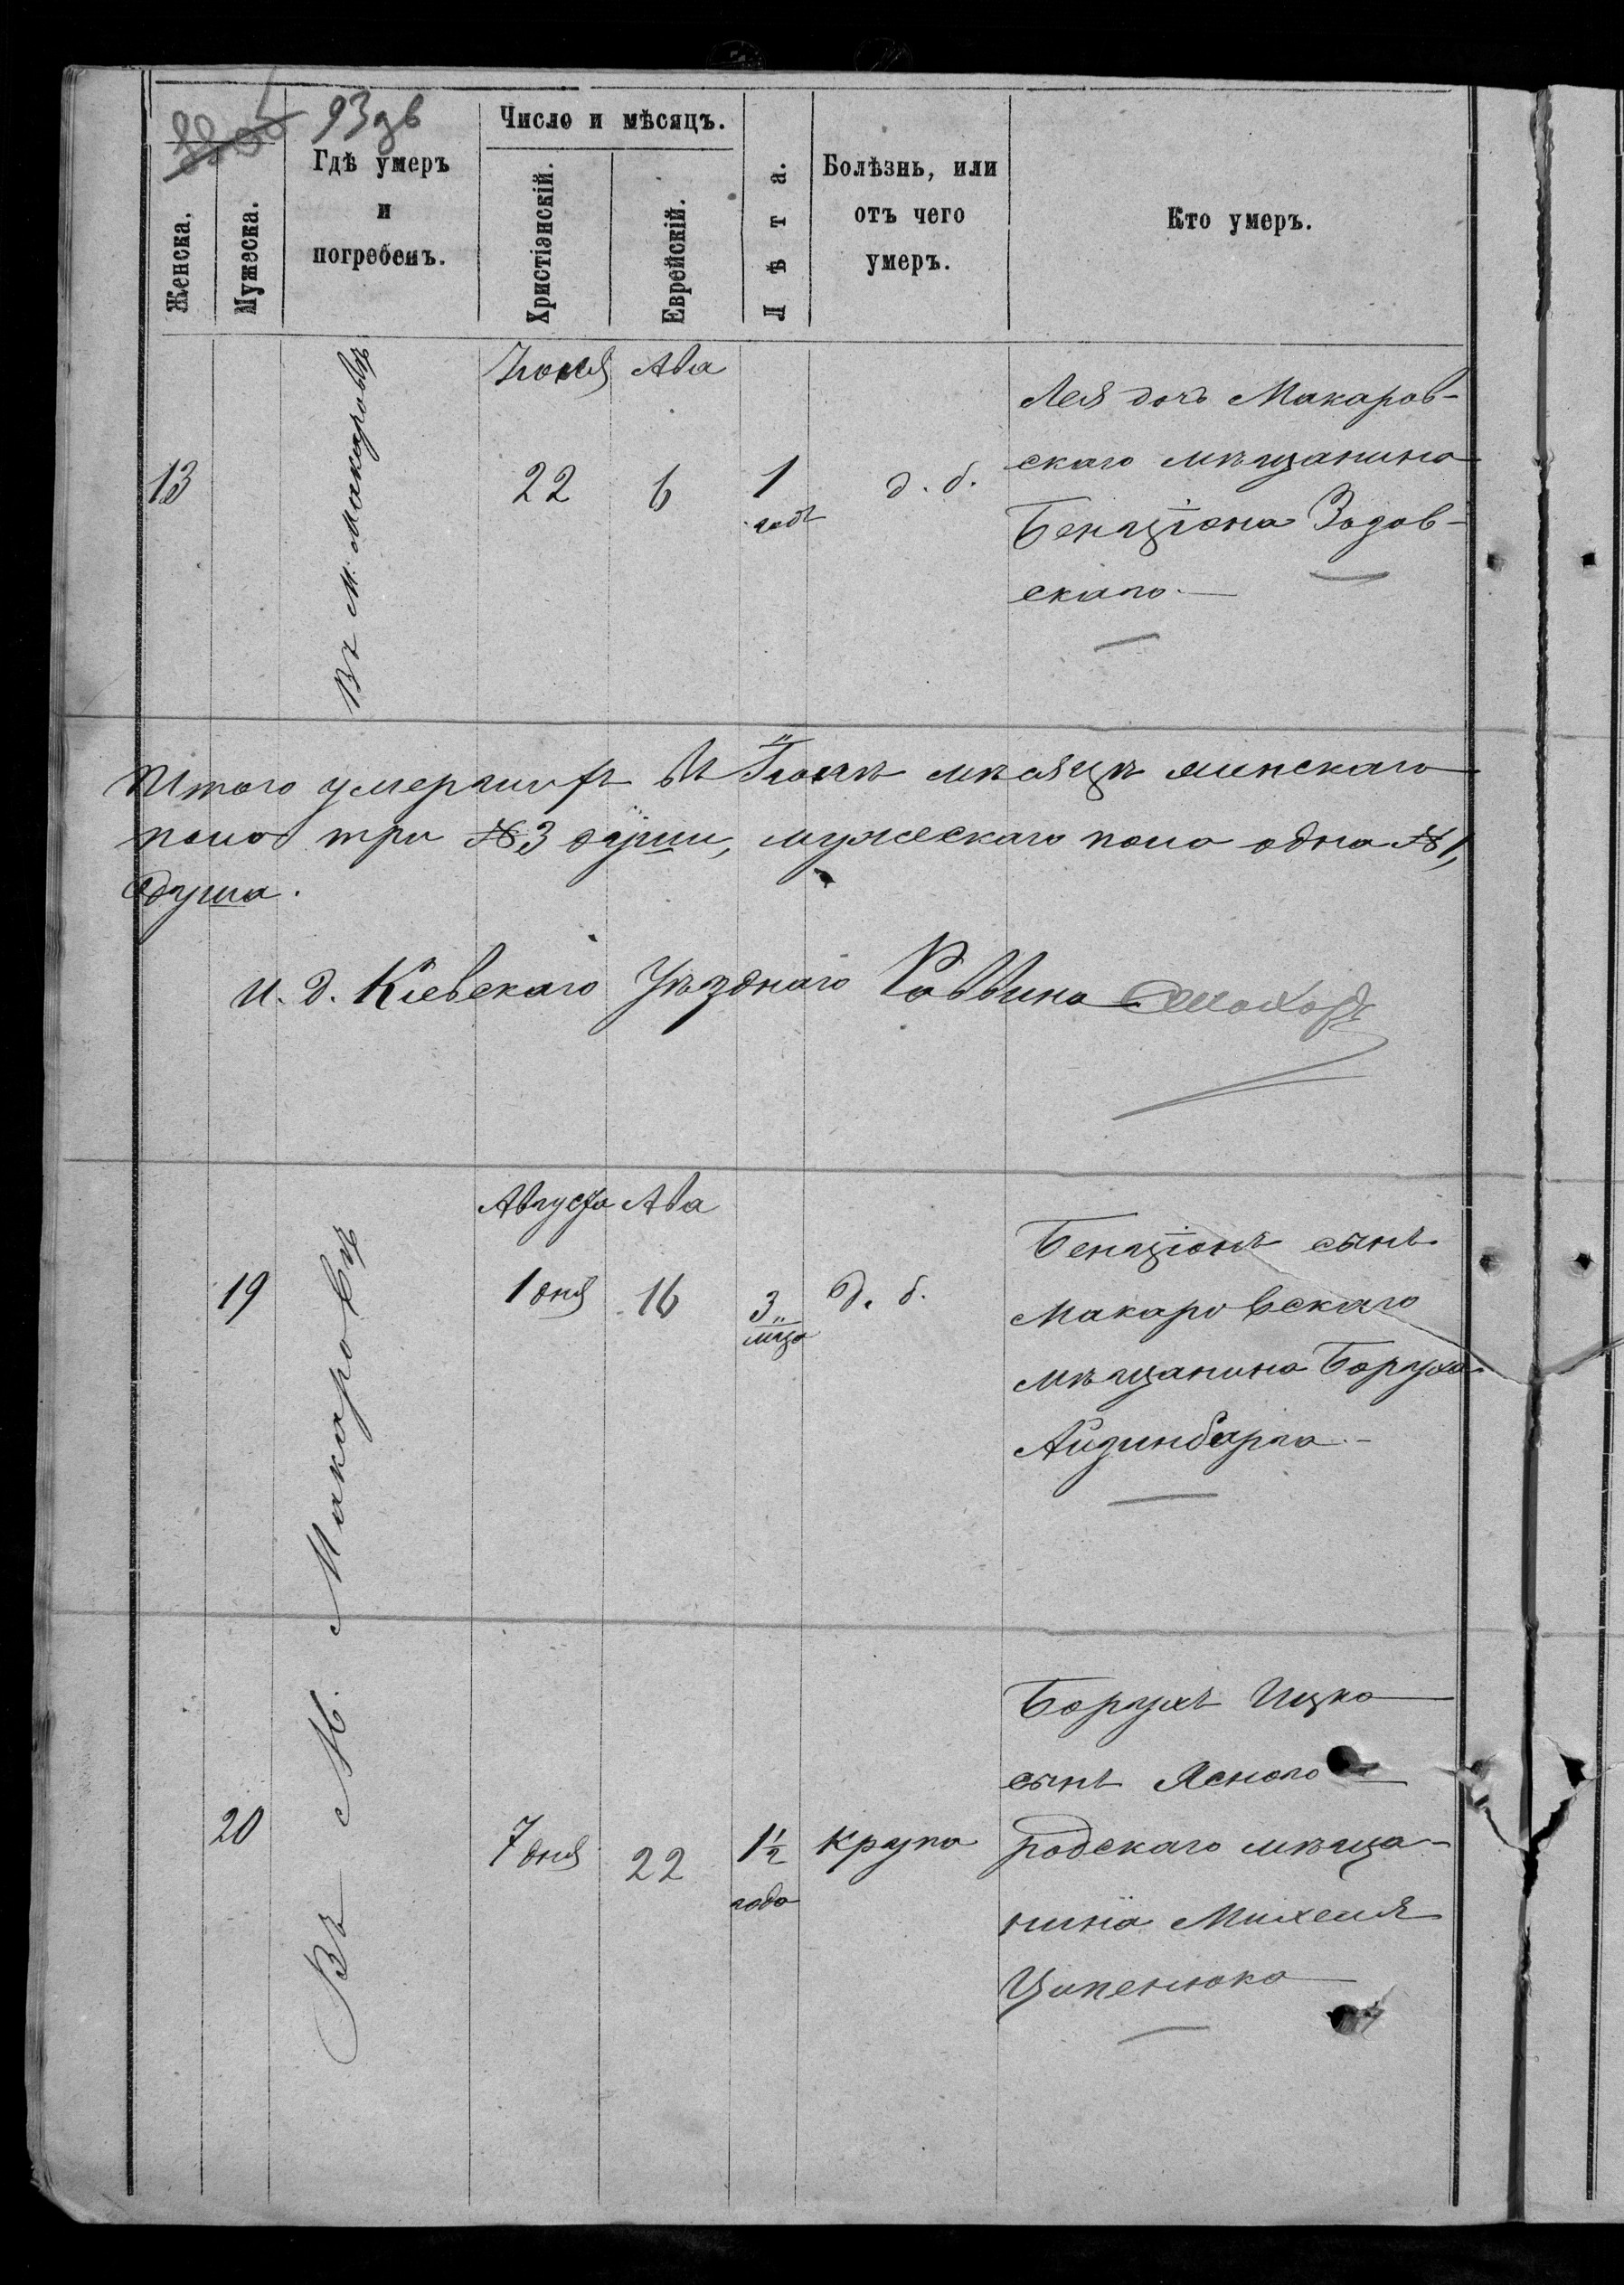 93 зв
Женска.
Мужеска.
Гдѣ умеръ
и
погребенъ.
Число и мѣсяцъ.
Христіанскій.
Еврейскій.
Лѣта.
Болѣзнь, или
отъ чего
умеръ.
Кто умеръ.
13
Въ м. Макаровѣ
Іюля
22
Ава
6
1
годъ
д. б.
Лея дочь Макаров-
скаго мѣщанина
Бенціона Задов-
скаго.
Итого умершихъ въ Іюлѣ мѣсяцѣ женскаго
пола три № 3 души, мужескаго пола одна № 1,
душа.
И. д. Кіевскаго Уѣзднаго Раввина
19
Въ М. Макаровѣ
Августа
1 дня
Ава
16
3
мѣца
д. б.
Бенціонъ сынъ
Макаровскаго
мѣщанина Боруха
Айзинбарга
20
7 дня
22
1½
года
Крупа
Борухъ Ицко
сынъ Ясного
родскаго мѣща-
нина Михеля
Ципенюка